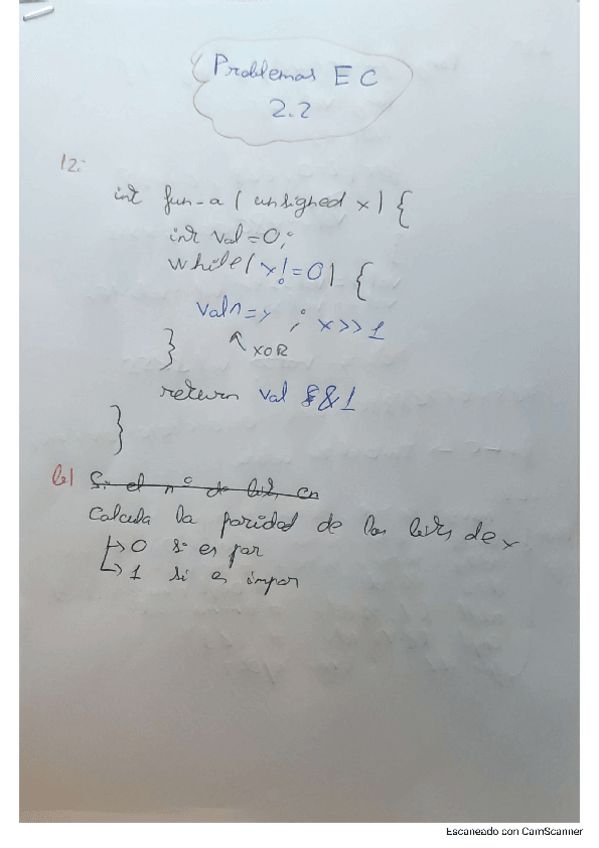 Problemas EC
2.2
12:
int fun-a ( unsigned x) {
int val=0;
while( x!=0) {
val^=x ; x>>1
} ↖ XOR
return val &1
}
b) Si el nº de bits en
Calcula la paridad de los bits de x
↳ 0 si es par
↳ 1 si es impar
Escaneado con CamScanner